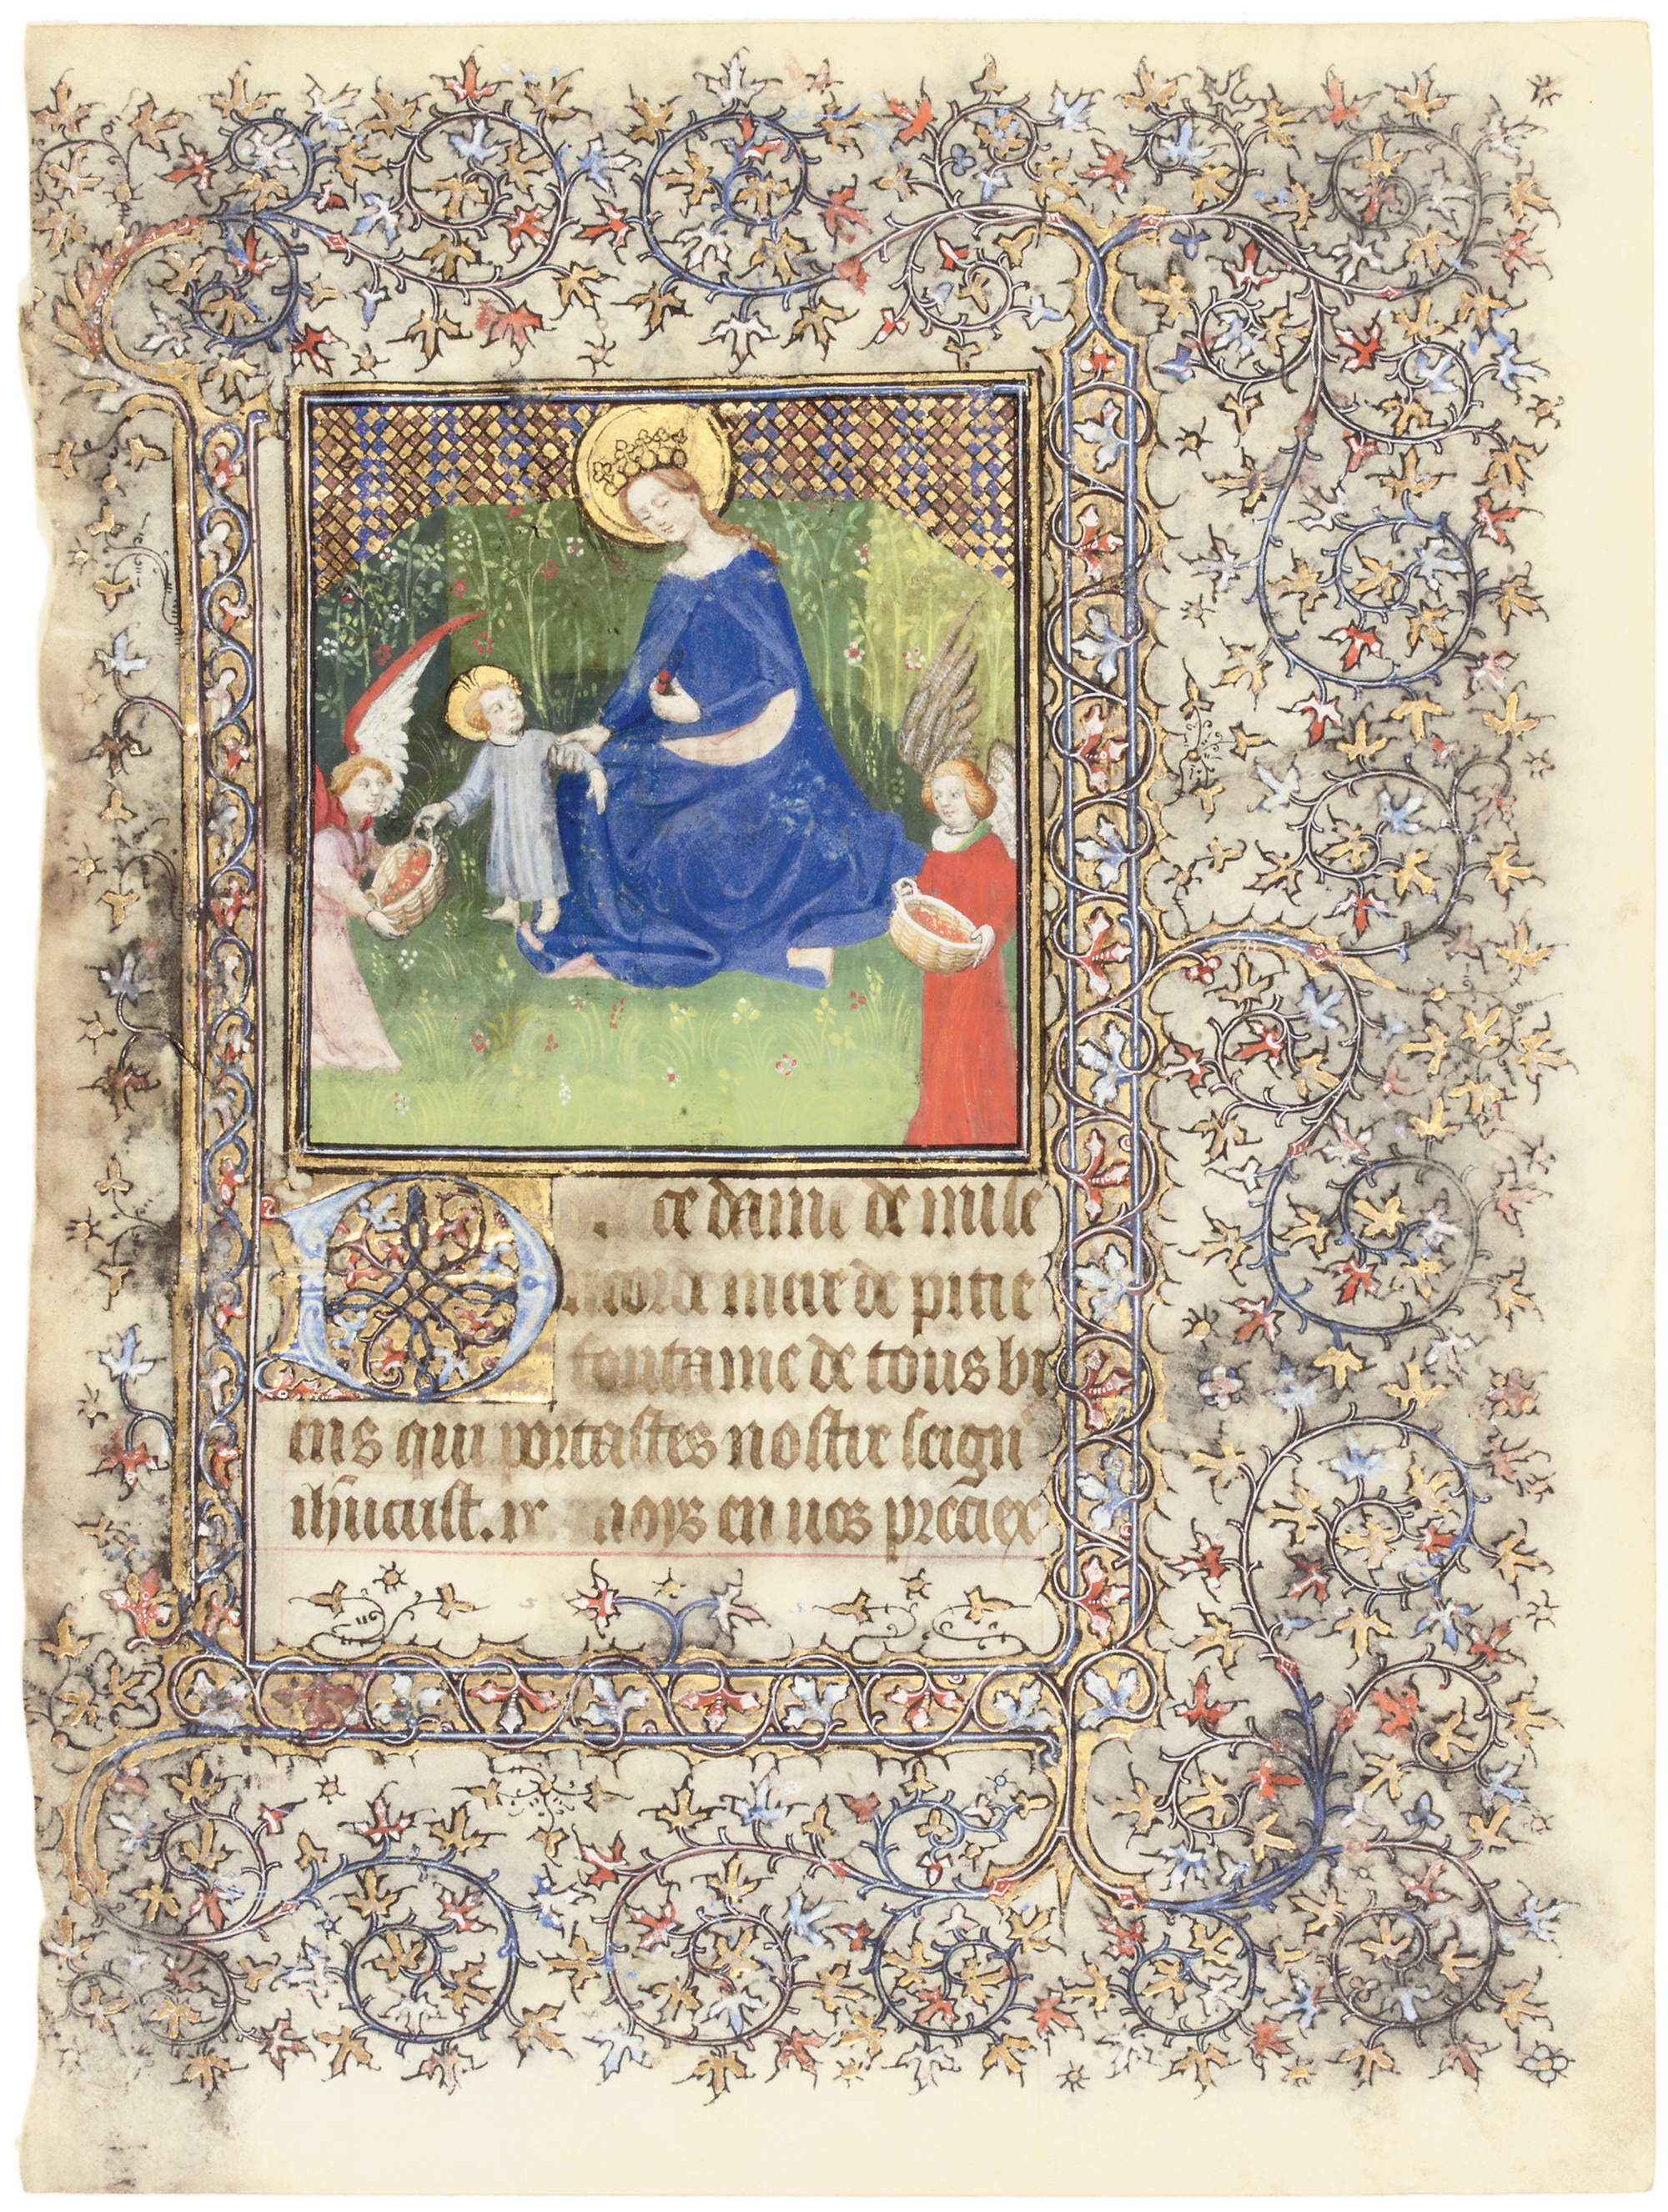 D ce dame de mise
ricorde mere de pitie
fontaine de tous bi
ens qui portastes nostre seign
ihucrist. en ues preciex